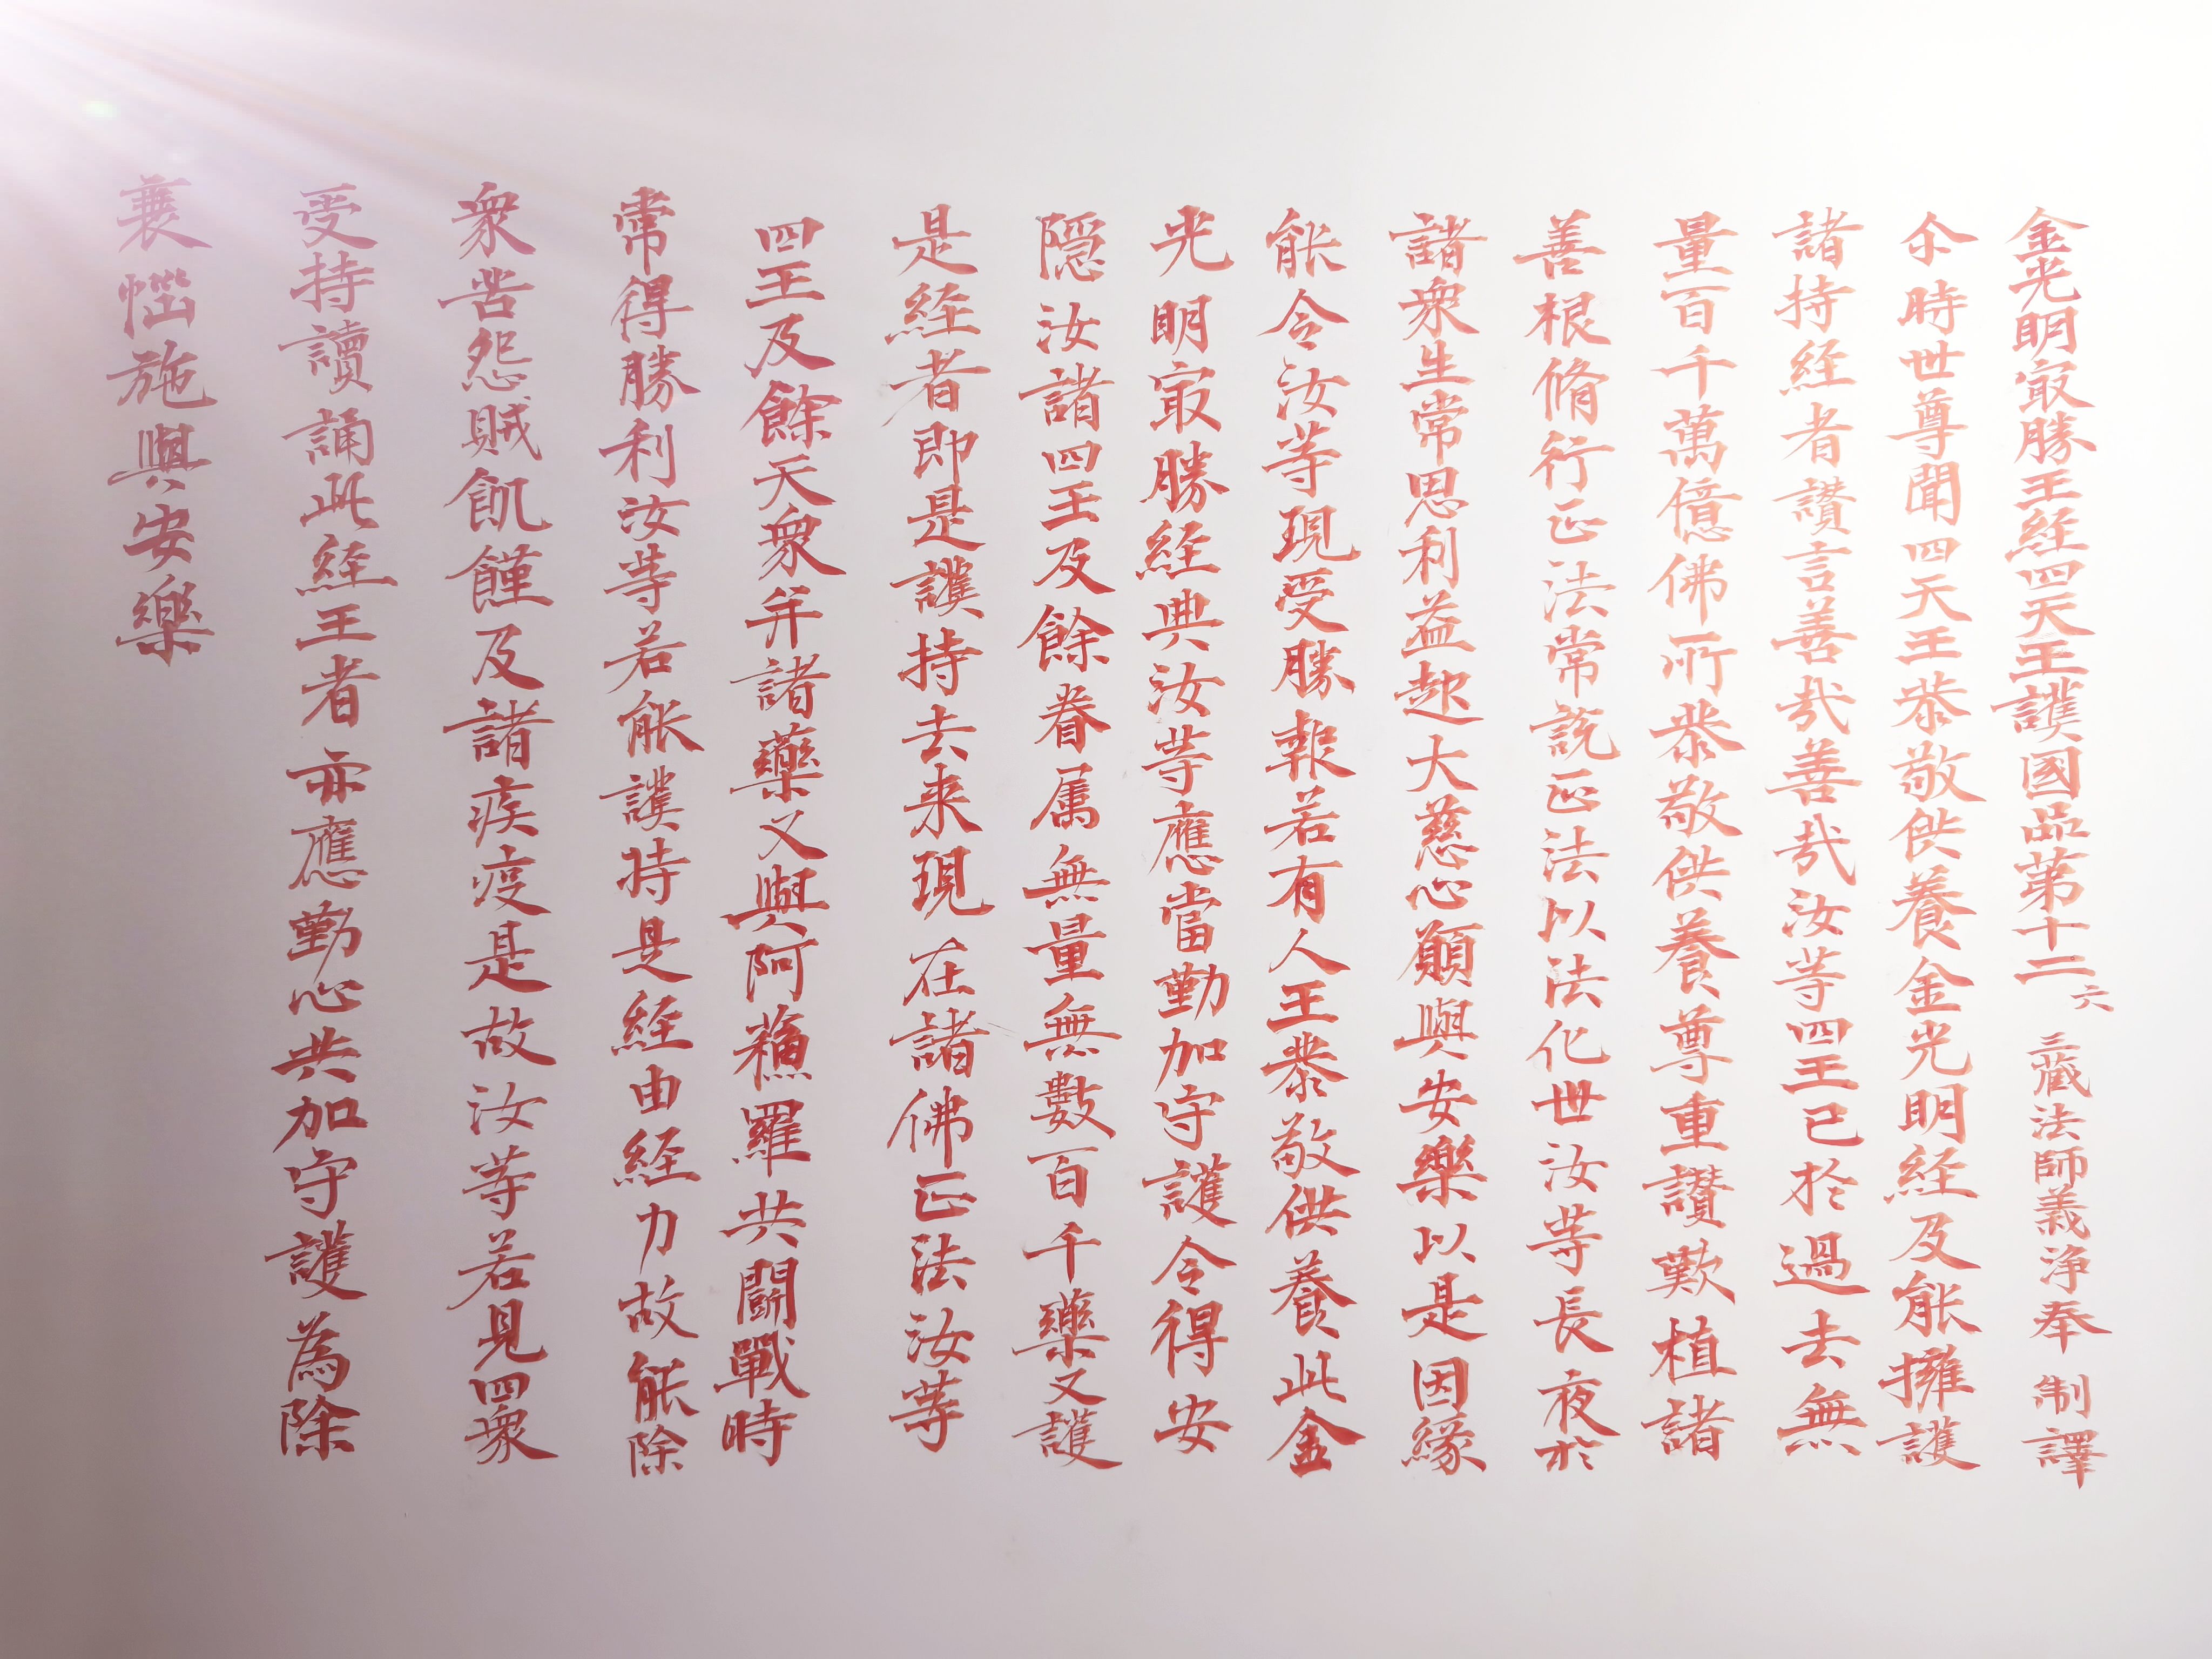 金光明冣勝王経四天王護國品第十二 六 三藏法師義淨奉 制譯
尒時世尊聞四天王恭敬供養金光明経及能擁護
諸持経者讃言善哉善哉汝等四王已於過去無
量百千萬億佛所恭敬供養尊重讃歎植諸
善根脩行正法常説正法以法化世汝等長夜於
諸衆生常思利益起大慈心願與安樂以是因縁
能令汝等現受勝報若有人王恭敬供養此金
光明冣勝経典汝等應當勤加守護令得安
隠汝諸四王及餘眷属無量無數百千藥叉護
是経者即是護持去来現在諸佛正法汝等
四王及餘天衆并諸藥叉與阿蘓羅共鬪戰時
常得勝利汝等若能護持是経由経力故能除
衆苦怨賊飢饉及諸疾疫是故汝等若見四衆
受持讀誦此経王者亦應勤心共加守護為除
衰惱施與安樂